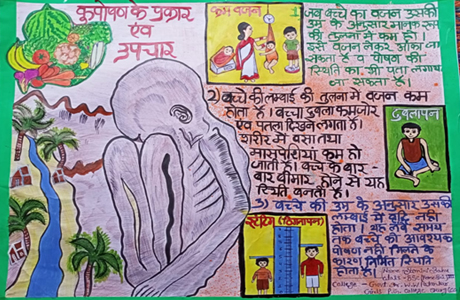 कुपोषण के प्रकार
एवं
उपचार
कम वजन
1) जब बच्चे का वजन उसकी
उम्र के अनुसार मानक स्तर
की तुलना में कम हो।
इसे वजन लेकर आंका जा
सकता है व पोषण की
स्थिति का भी पता लगाया
जा सकता है।
2) बच्चे की लम्बाई की तुलना में वजन कम
होता है। बच्चा दुबला कमजोर
एवं पतला दिखने लगता है।
शरीर में वसा तथा
मांसपेशियां कम हो
जाती है। बच्चे के बार-
बार बीमार होने से यह
स्थिति बनती है।
दुबलापन
3) बच्चे की उम्र के अनुसार उसकी
लम्बाई में वृद्धि नहीं
होता। यह लंबे समय
तक बच्चे को आवश्यक
पोषण नहीं मिलने के
कारण निर्मित स्थिति
होता है।
(ठिगनापन)
Name
Class - BSC
College - Govt.